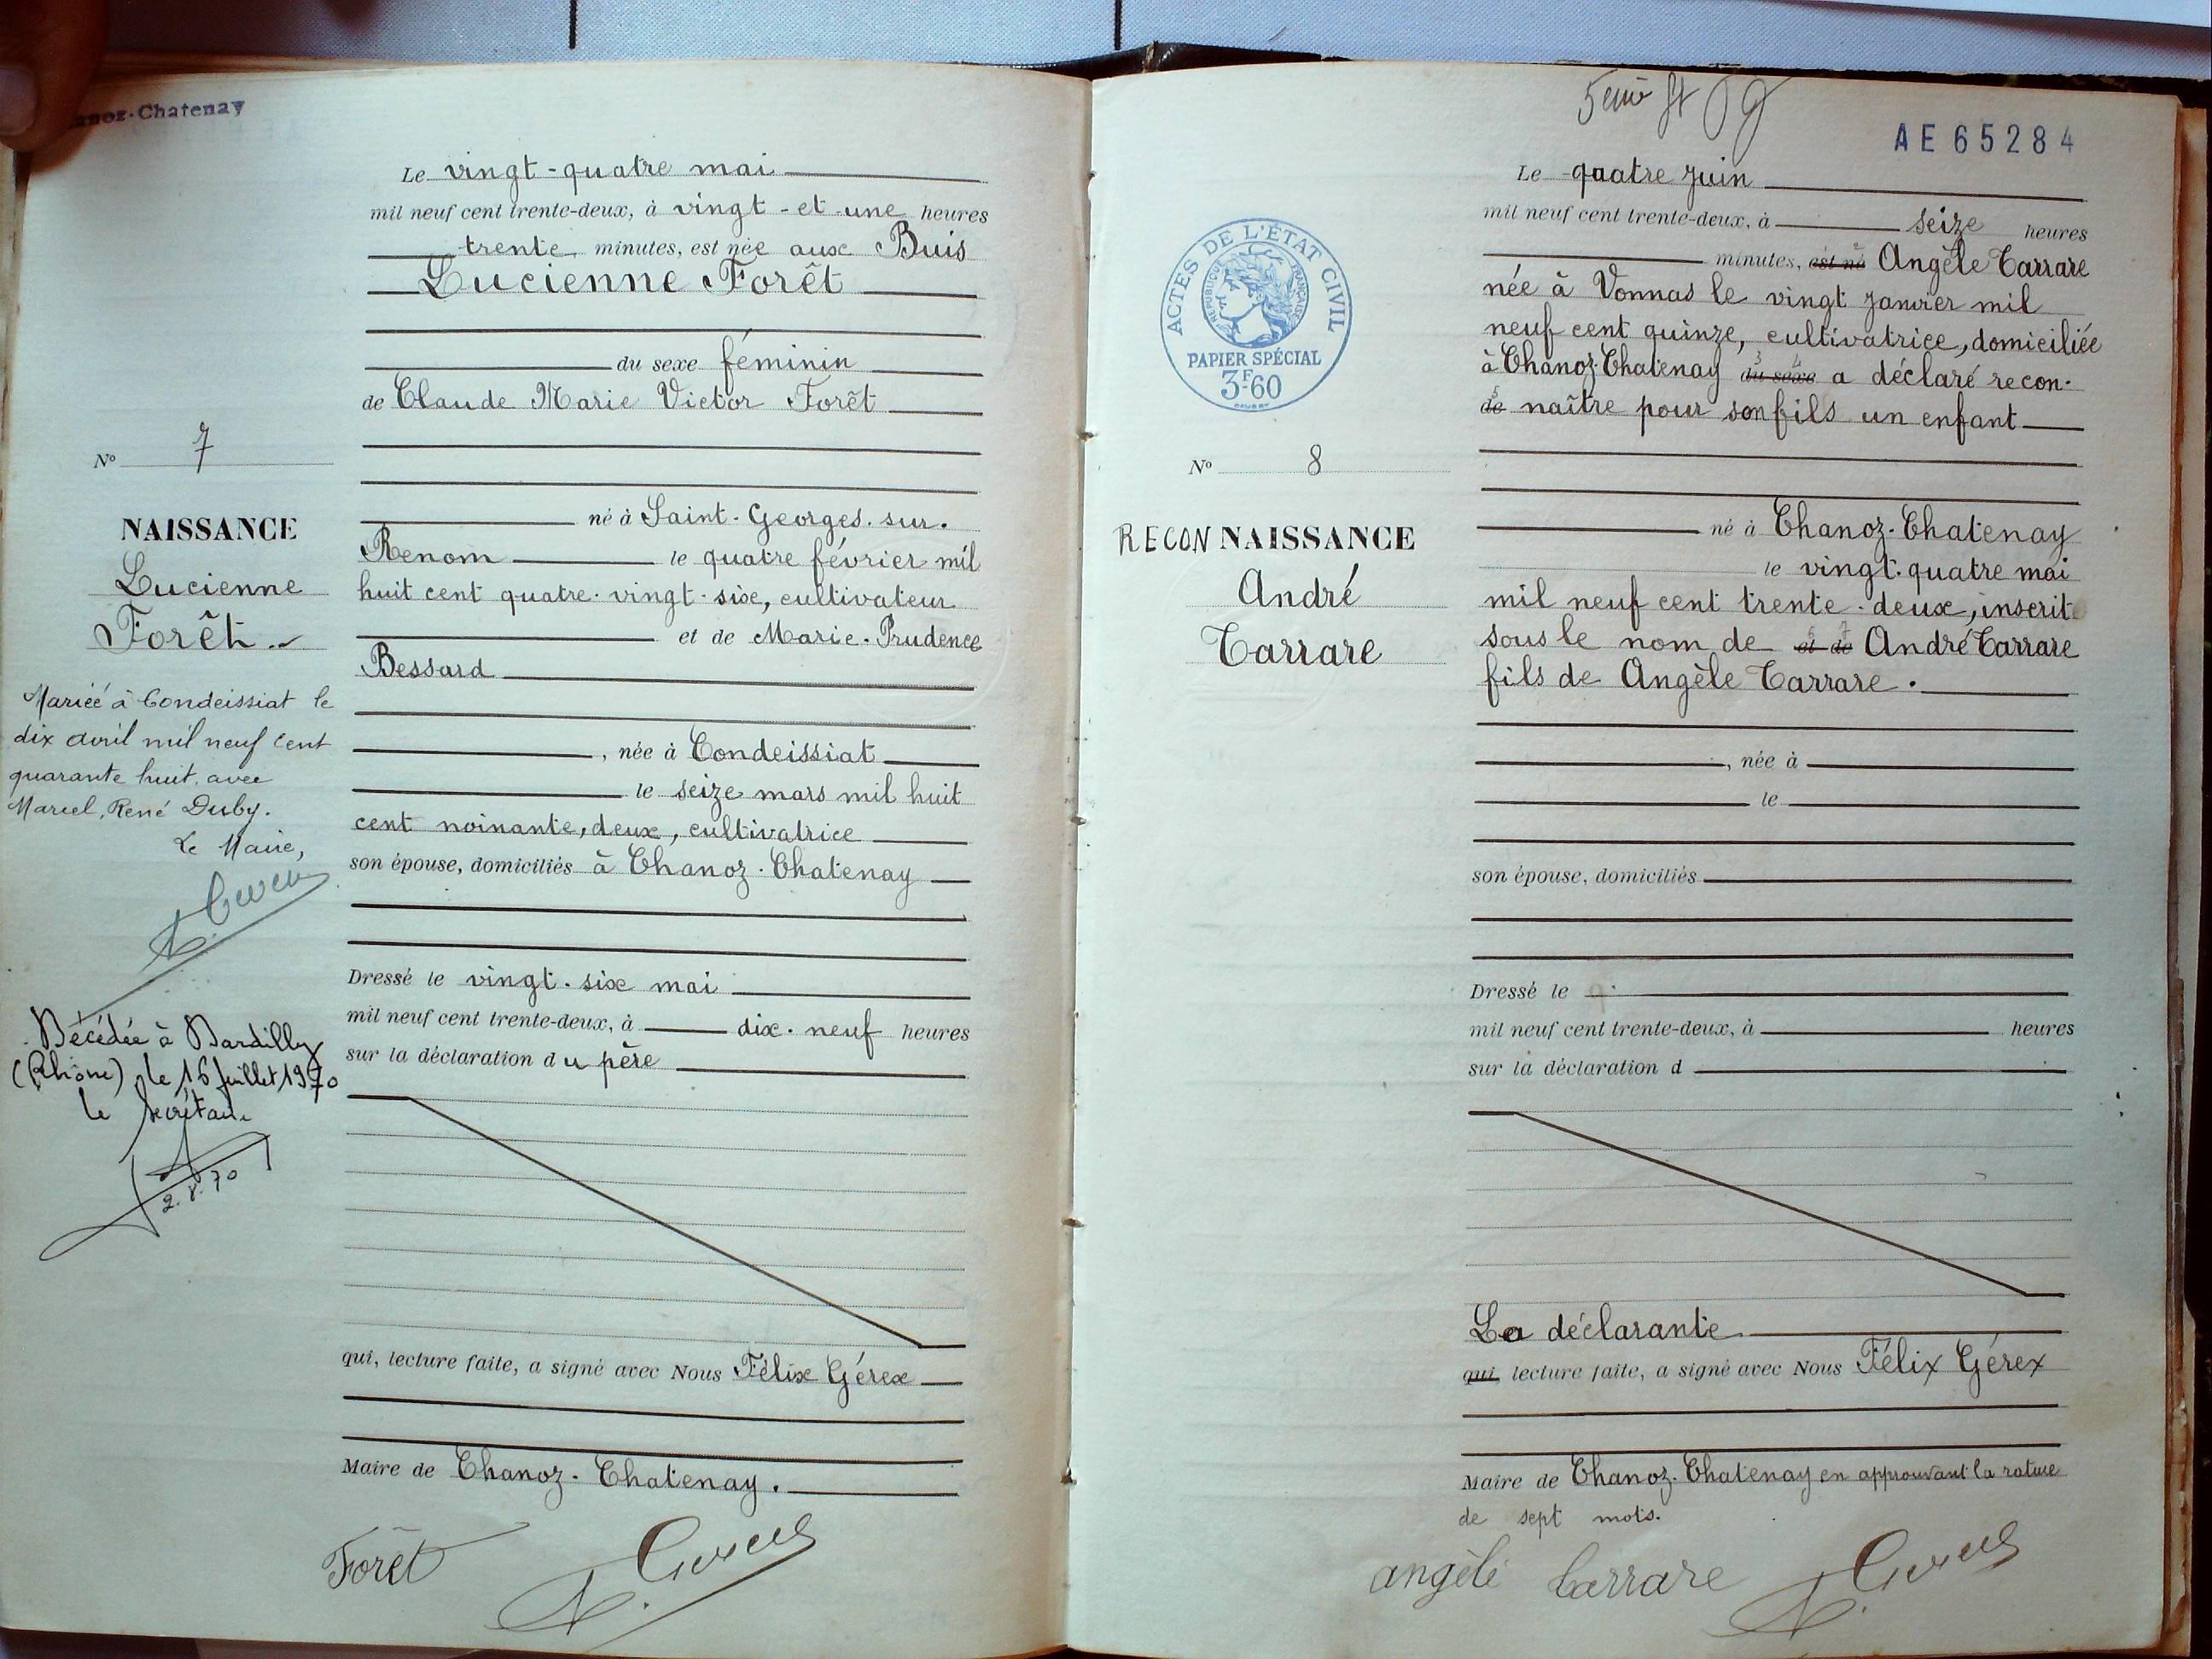 noz-Chatenay
Le vingt-quatre mai
mil neuf cent trente-deux, à vingt-et-une heures
trente minutes, est née aux Buis
Lucienne Forêt
du sexe féminin
de Claude Marie Victor Forêt
né à Saint-Georges-sur-
Renom le quatre février mil
huit cent quatre-vingt-six, cultivateur
et de Marie-Prudence
Bessard
, née à Condeissiat
le seize mars mil huit
cent noinante, deux, cultivatrice
son épouse, domiciliés à Chanoz-Chatenay
Dressé le vingt-six mai
mil neuf cent trente-deux, à dix-neuf heures
sur la déclaration du père
qui, lecture faite, a signé avec Nous Félix Gérex
Maire de Chanoz-Chatenay.
Forêt
N° 7
NAISSANCE
Lucienne
Forêt
Mariée à Condeissiat le
dix avril mil neuf cent
quarante huit avec
Marcel, René Duby.
Le Maire,
Décédée à Dardilly
(Rhône) le 16 juillet 1970
le secrétaire
2.8.70
5eme ft
AE 65284
ACTES DE L'ÉTAT CIVIL
RÉPUBLIQUE FRANÇAISE
PAPIER SPÉCIAL
3F60
N° 8
RECONNAISSANCE
André
Carrare
Le quatre juin
mil neuf cent trente-deux, à seize heures
minutes, est né Angèle Carrare
née à Vonnas le vingt janvier mil
neuf cent quinze, cultivatrice, domiciliée
à Chanoz-Chatenay du sexe a déclaré recon-
de naître pour son fils un enfant
né à Chanoz-Chatenay
le vingt-quatre mai
mil neuf cent trente-deux, inscrit
sous le nom de et de André Carrare
fils de Angèle Carrare.
, née à
le
son épouse, domiciliés
Dressé le
mil neuf cent trente-deux, à heures
sur la déclaration d
La déclarante
qui, lecture faite, a signé avec Nous Félix Gérex
Maire de Chanoz-Chatenay en approuvant la rature
de sept mots.
angèle Carrare